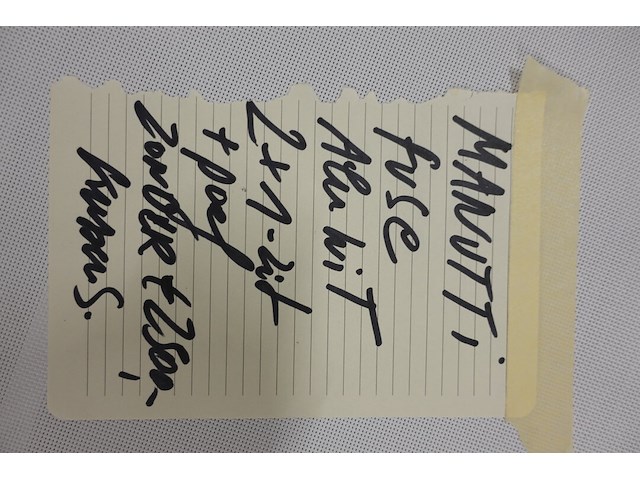 MANUTTI
fuse
Alu wit
2x1-zit
+ poef
ZONDER € 2500,-
kussens.